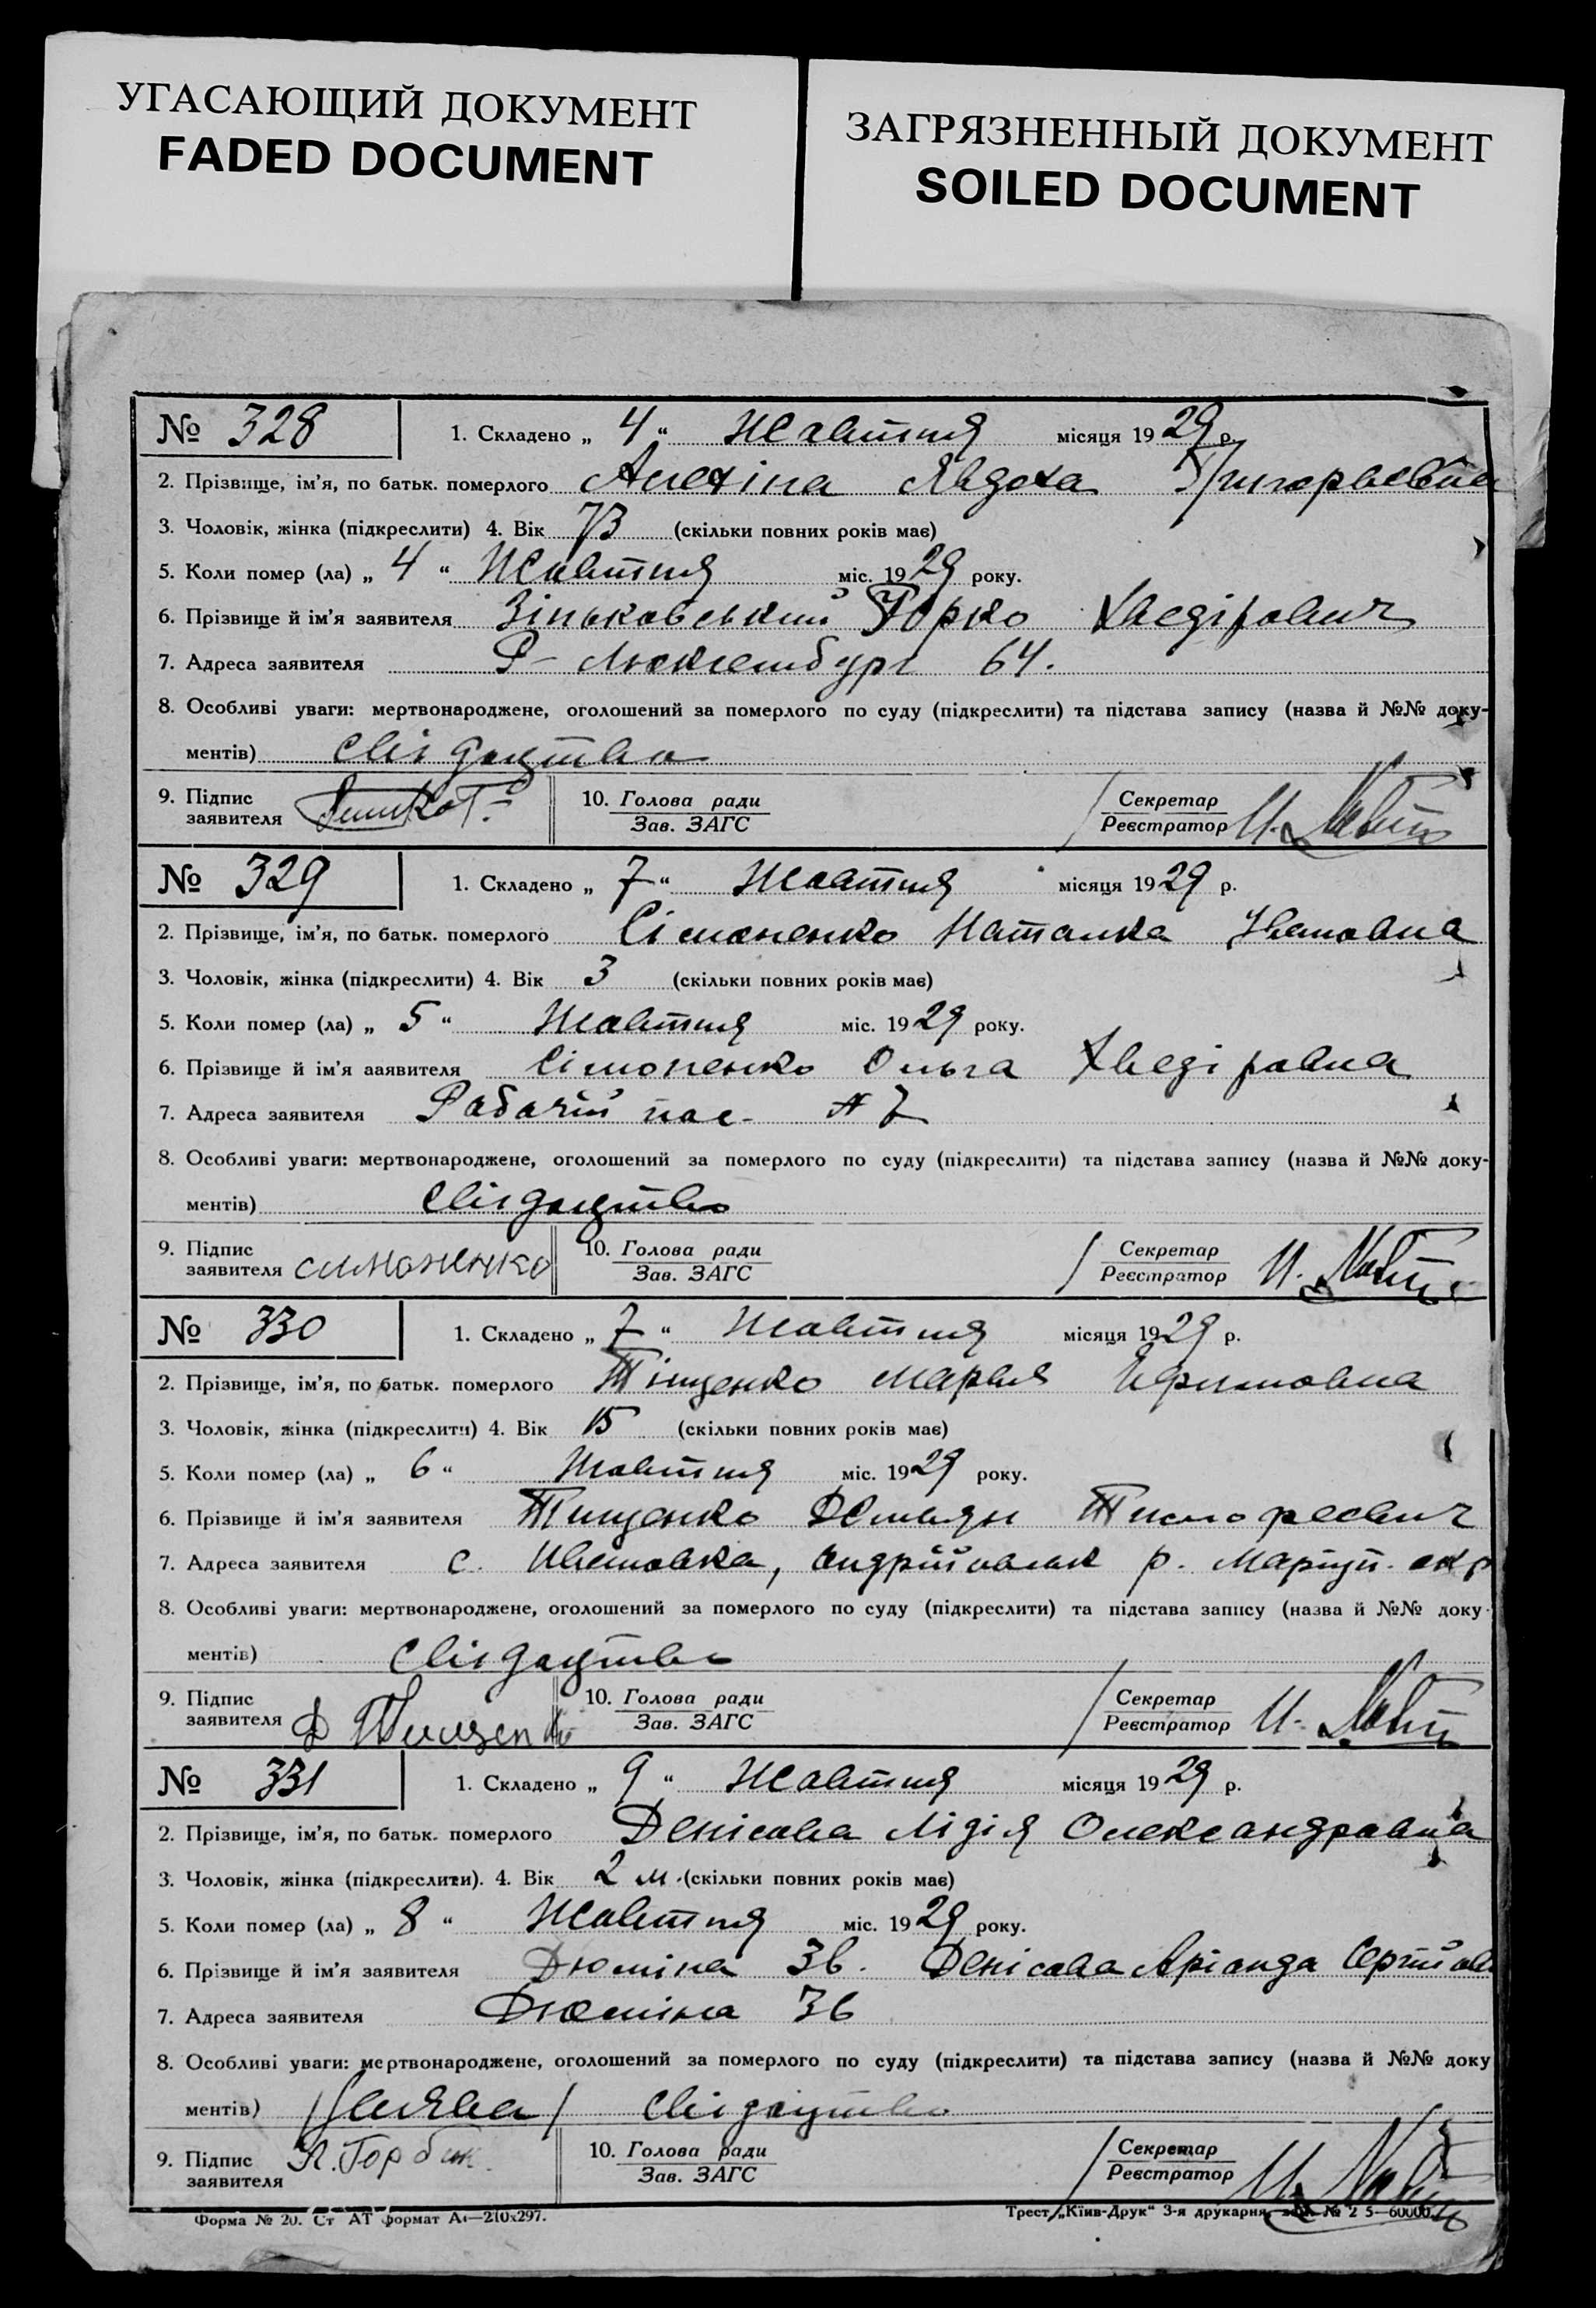 УГАСАЮЩИЙ ДОКУМЕНТ
FADED DOCUMENT
ЗАГРЯЗНЕННЫЙ ДОКУМЕНТ
SOILED DOCUMENT
№ 328 1. Складено „ 4 “ Жовтня місяця 1929 р.
2. Прізвище, ім’я, по батьк. померлого Явдоха Григорьевна
3. Чоловік, жінка (підкреслити) 4. Вік 73 (скільки повних років має)
5. Коли помер (ла) „ 4 “ Жовтня міс. 1929 року.
6. Прізвище й ім’я заявителя Зіньковський Юрко Хведірович
7. Адреса заявителя Р- Люксембург 64.
8. Особливі уваги: мертвонароджене, оголошений за померлого по суду (підкреслити) та підстава запису (назва й №№ доку-
ментів) свідоцтво
9. Підпис заявителя 10. Голова ради Зав. ЗАГС Секретар Реєстратор
№ 329 1. Складено „ 7 “ Жовтня місяця 1929 р.
2. Прізвище, ім’я, по батьк. померлого Сімоненко Наталка Івановна
3. Чоловік, жінка (підкреслити) 4. Вік 3 (скільки повних років має)
5. Коли помер (ла) „ 5 “ Жовтня міс. 1929 року.
6. Прізвище й ім’я заявителя Сімоненко Ольга Хведіровна
7. Адреса заявителя Рабочій пос. № 7
8. Особливі уваги: мертвонароджене, оголошений за померлого по суду (підкреслити) та підстава запису (назва й №№ доку-
ментів) свідоцтво
9. Підпис заявителя симоненко 10. Голова ради Зав. ЗАГС Секретар Реєстратор
№ 330 1. Складено „ 7 “ Жовтня місяця 1929 р.
2. Прізвище, ім’я, по батьк. померлого Тіщенко Марья
3. Чоловік, жінка (підкреслити) 4. Вік 15 (скільки повних років має)
5. Коли помер (ла) „ 6 “ Жовтня міс. 1929 року.
6. Прізвище й ім’я заявителя Тищенко Демьян Тимофеевич
7. Адреса заявителя с. Ивановка, Андрійовськ р. Маріуп. окр
8. Особливі уваги: мертвонароджене, оголошений за померлого по суду (підкреслити) та підстава запису (назва й №№ доку
ментів) свідоцтво
9. Підпис заявителя Д Тищенко 10. Голова ради Зав. ЗАГС Секретар Реєстратор
№ 331 1. Складено „ 9 “ Жовтня місяця 1929 р.
2. Прізвище, ім’я, по батьк. померлого Денісова Лідія Олександровна
3. Чоловік, жінка (підкреслити). 4. Вік 2 м. (скільки повних років має)
5. Коли помер (ла) „ 8 “ Жовтня міс. 1929 року.
6. Прізвище й ім’я заявителя Дюміна 36. Денісова Аріанда
7. Адреса заявителя Дюміна 36
8. Особливі уваги: мертвонароджене, оголошений за померлого по суду (підкреслити) та підстава запису (назва й №№ доку
ментів) свідоцтво
9. Підпис заявителя 10. Голова ради Зав. ЗАГС Секретар Реєстратор
Форма № 20. Ст АТ формат А4—210x297. Трест „Київ-Друк“ 3-я друкарня,